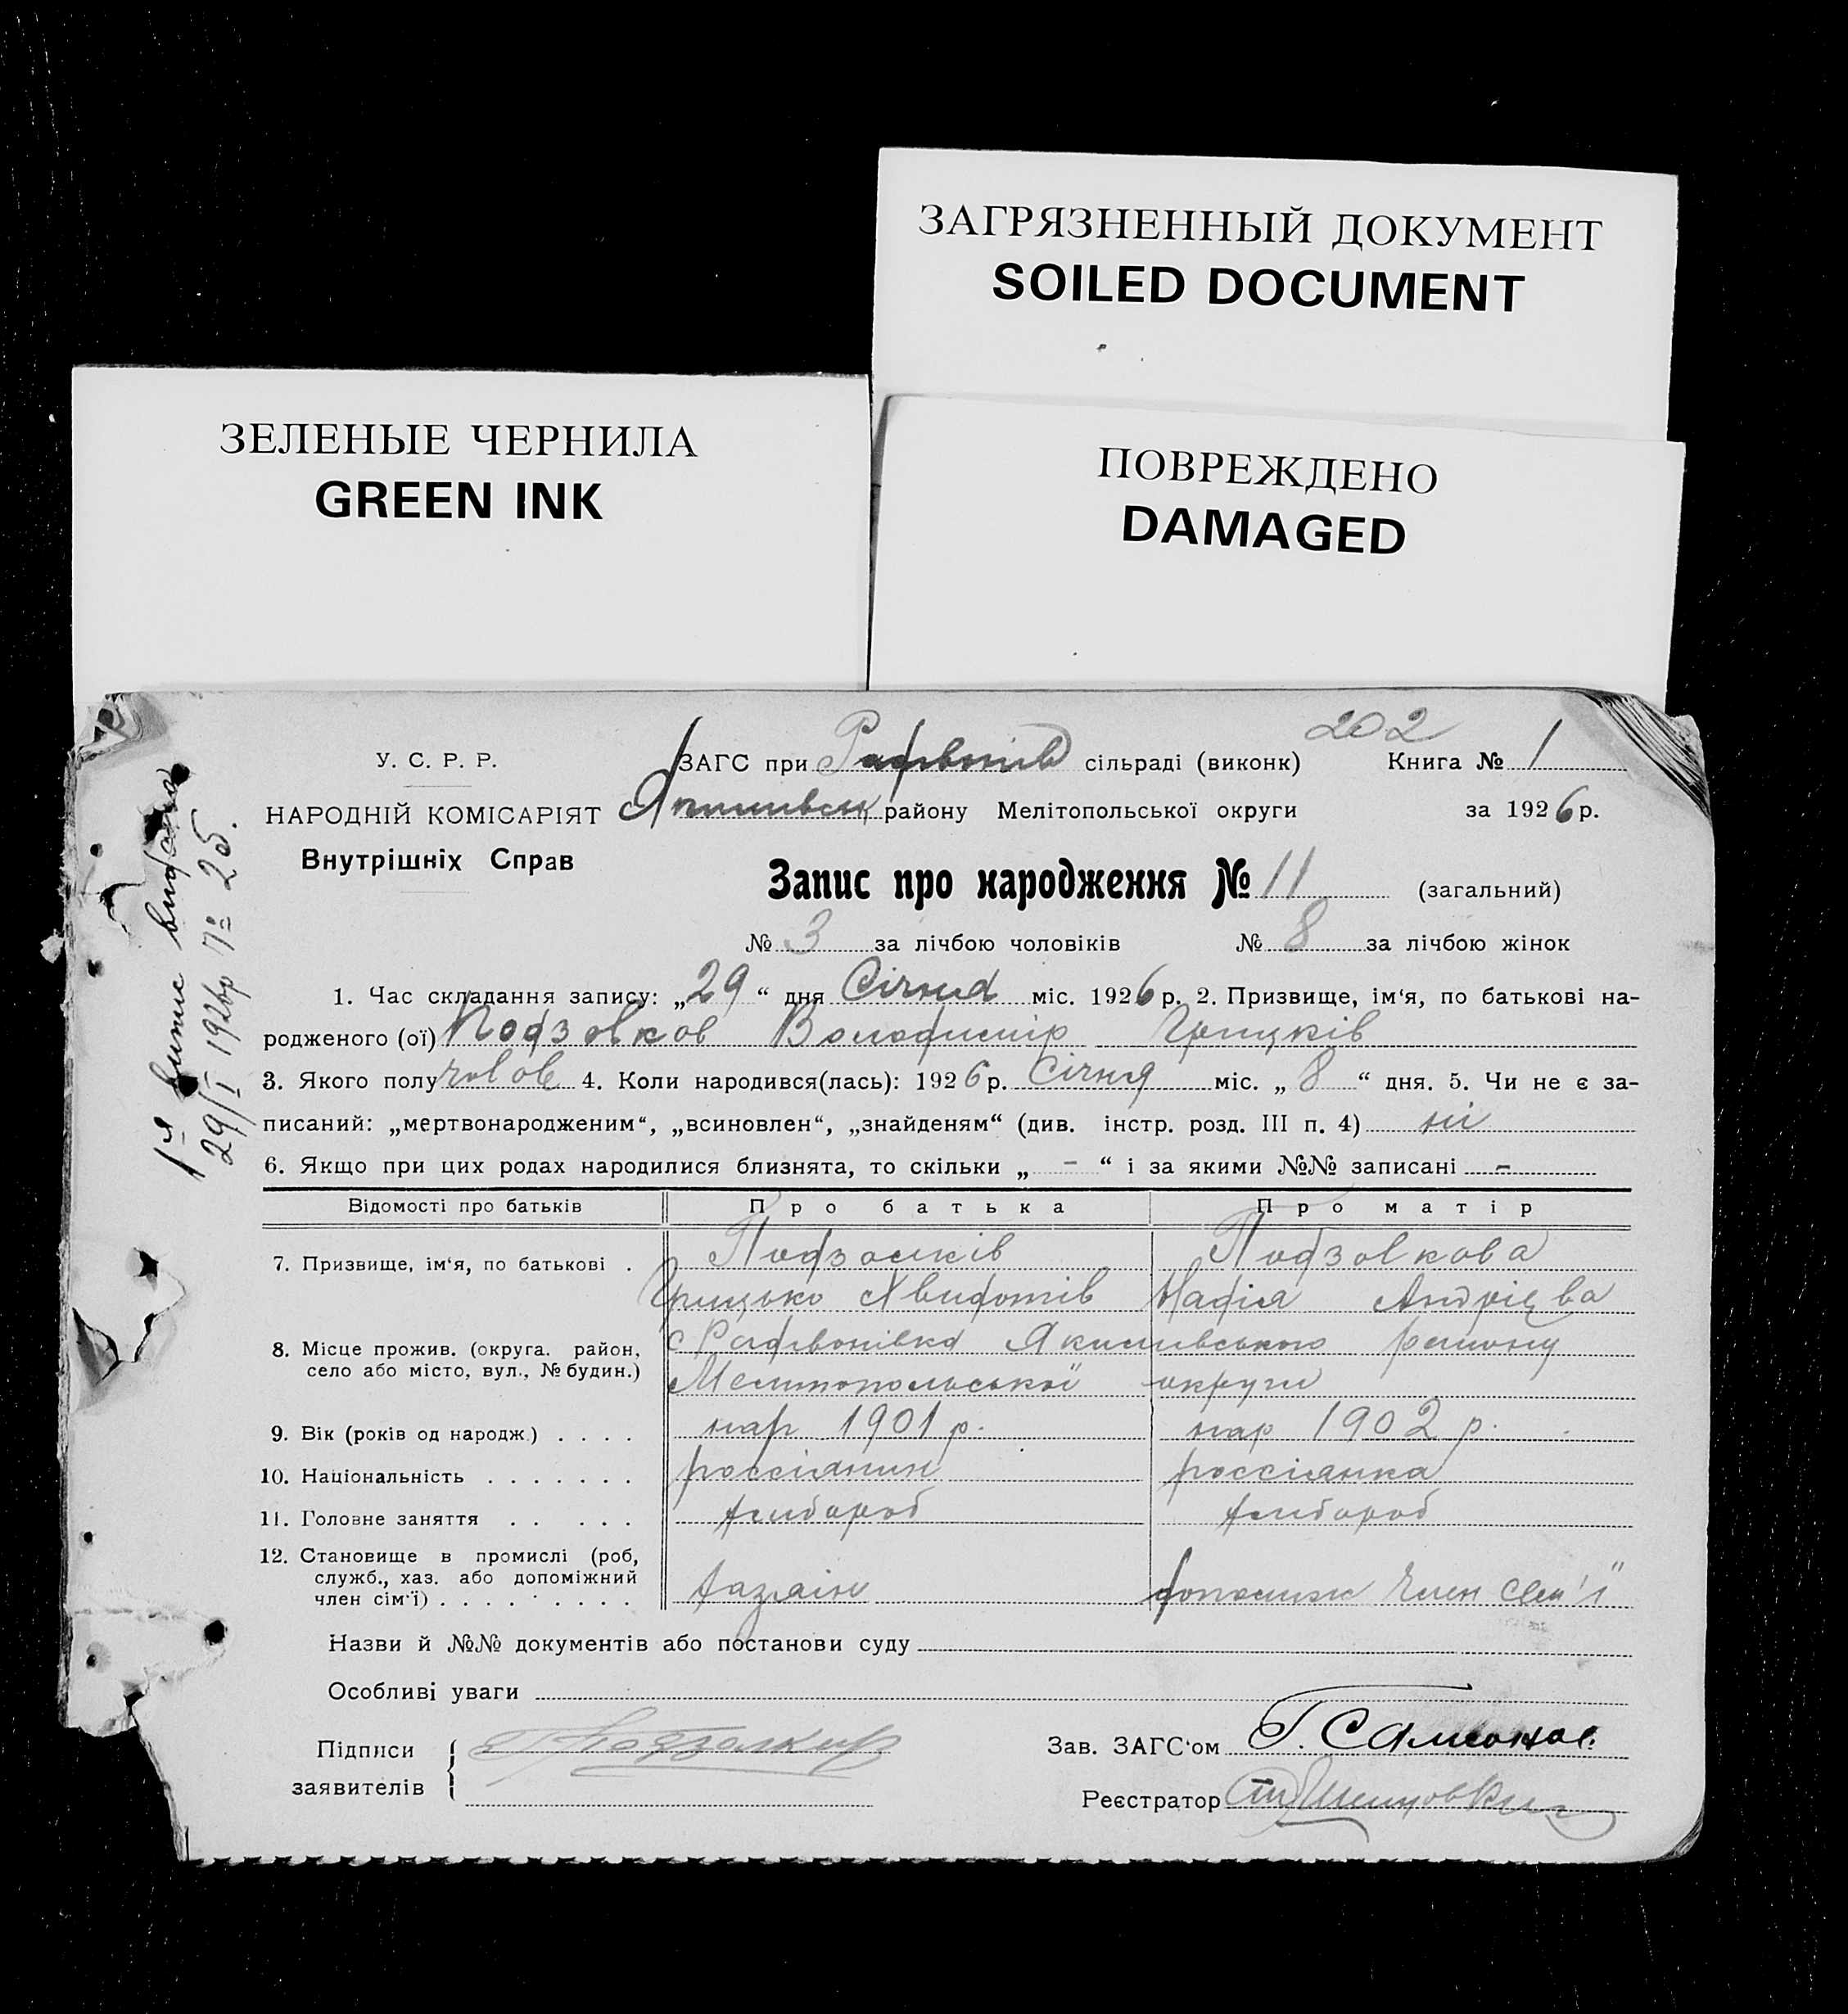 ЗАГРЯЗНЕННЫЙ ДОКУМЕНТ
SOILED DOCUMENT
ЗЕЛЕНЫЕ ЧЕРНИЛА
GREEN INK
ПОВРЕЖДЕНО
DAMAGED
202
У. С. Р. Р.
ЗАГС при сільраді (виконк) Книга № 1
НАРОДНІЙ КОМІСАРІЯТ
Якимівськ району Мелітопольської округи за 1926 р.
Внутрішніх Справ
Запис про народження № 11 (загальний)
№ 3 за лічбою чоловіків № 8 за лічбою жінок
1. Час складання запису: „29“ дня Січня міс. 1926 р. 2. Призвище, ім‘я, по батькові на-
родженого (ої) Подзолков Володимір Грицьків
3. Якого полу чолов 4. Коли народився(лась): 1926 р. Січня міс. „8“ дня. 5. Чи не є за-
писаний: „мертвонародженим“, „всиновлен“, „знайденям“ (див. інстр. розд. III п. 4) ні
6. Якщо при цих родах народилися близнята, то скільки „ - “ і за якими №№ записані -
Відомості про батьків Про батька Про матір
7. Призвище, ім‘я, по батькові . Подзолків Подзолкова
Грицько Андрієва
8. Місце прожив. (округа. район, село або місто, вул., № будин.) с Якимівського району
Мелітопольської округи
9. Вік (років од народж.) . . . . нар 1901 р. нар 1902 р.
10. Національність . . . . . . . россіянин россіянка
11. Головне заняття . . . . . хлібороб хлібороб
12. Становище в промислі (роб, служб., хаз. або допоміжний член сім‘ї) . . . . . . . . . хазяїн допоміжн член сем'ї
Назви й №№ документів або постанови суду
Особливі уваги
Підписи заявителів
Зав. ЗАГС‘ом Г. Самсонов.
Реєстратор
1я випис видана
29/I 1926р № 25.